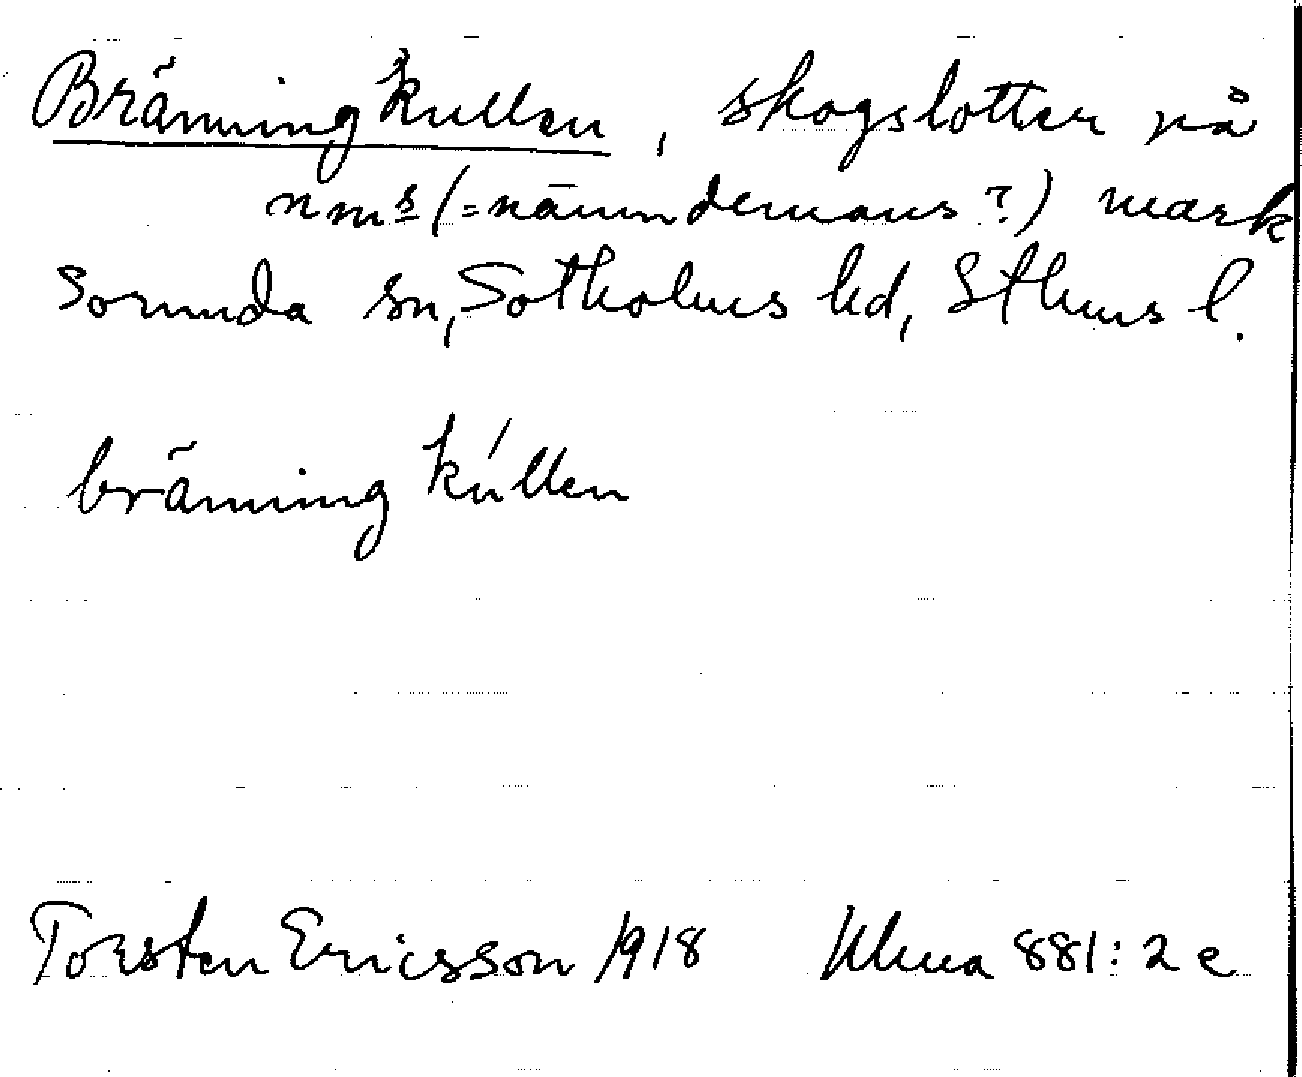 Bränningkullen, skogslotter på
nms (=nämndemans?) mark
Sorunda sn, Sotholms hd, Sthms l.
bränning kúllen
Torsten Ericsson 1918 Ulma 881:2 e